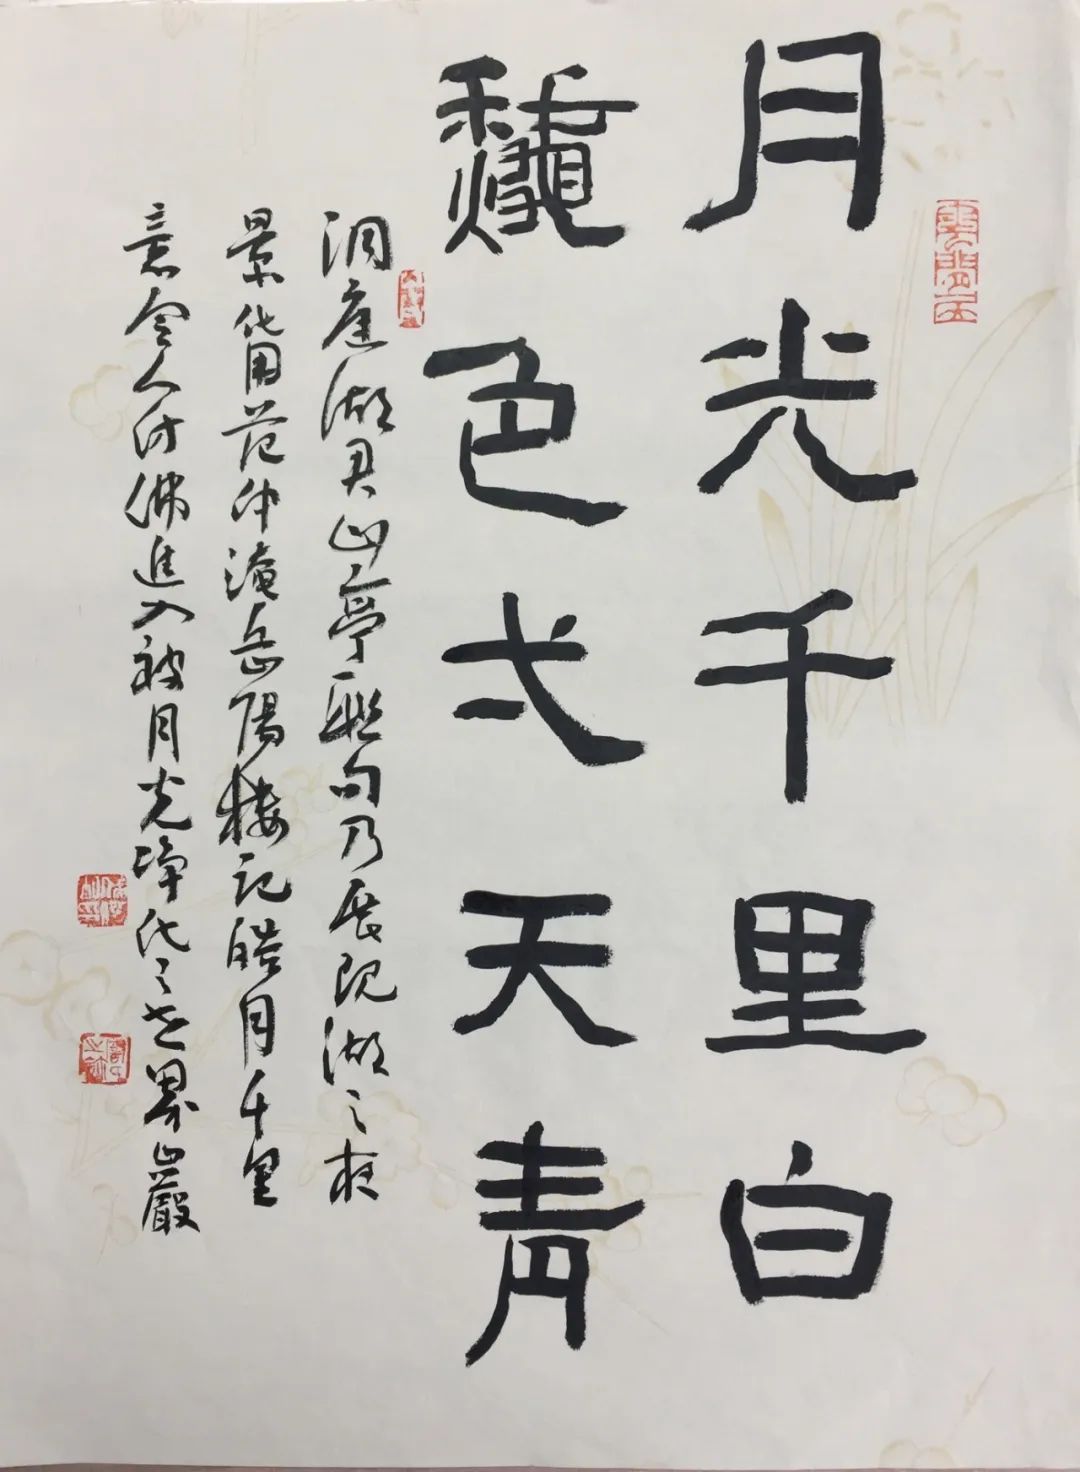 月光千里白
龝色弌天青
洞庭湖君山亭聯句乃展現湖之夜
景化用范仲淹岳陽楼記皓月千里
意令人彷佛進入被月光净化之世界山嚴